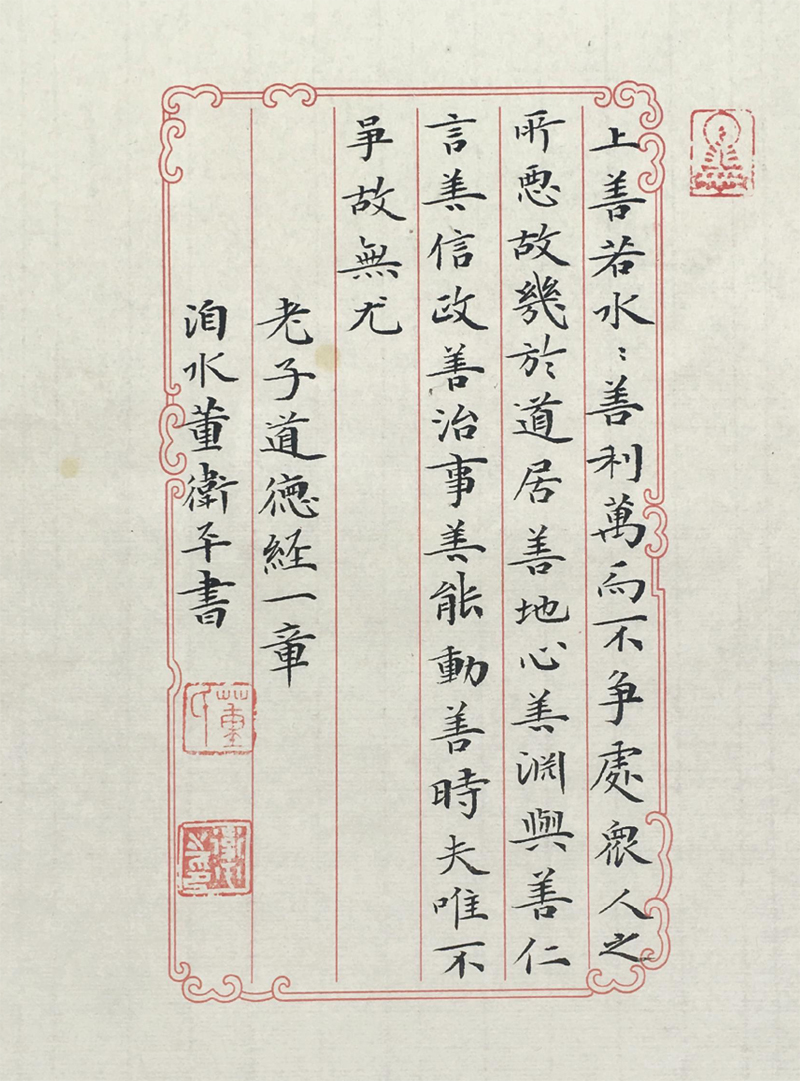 上善若水〻善利萬而不争處眾人之
所惡故幾於道居善地心善淵與善仁
言善信政善治事善能動善時夫唯不
爭故無尤
老子道德経一章
洎水董衛平書
董氏